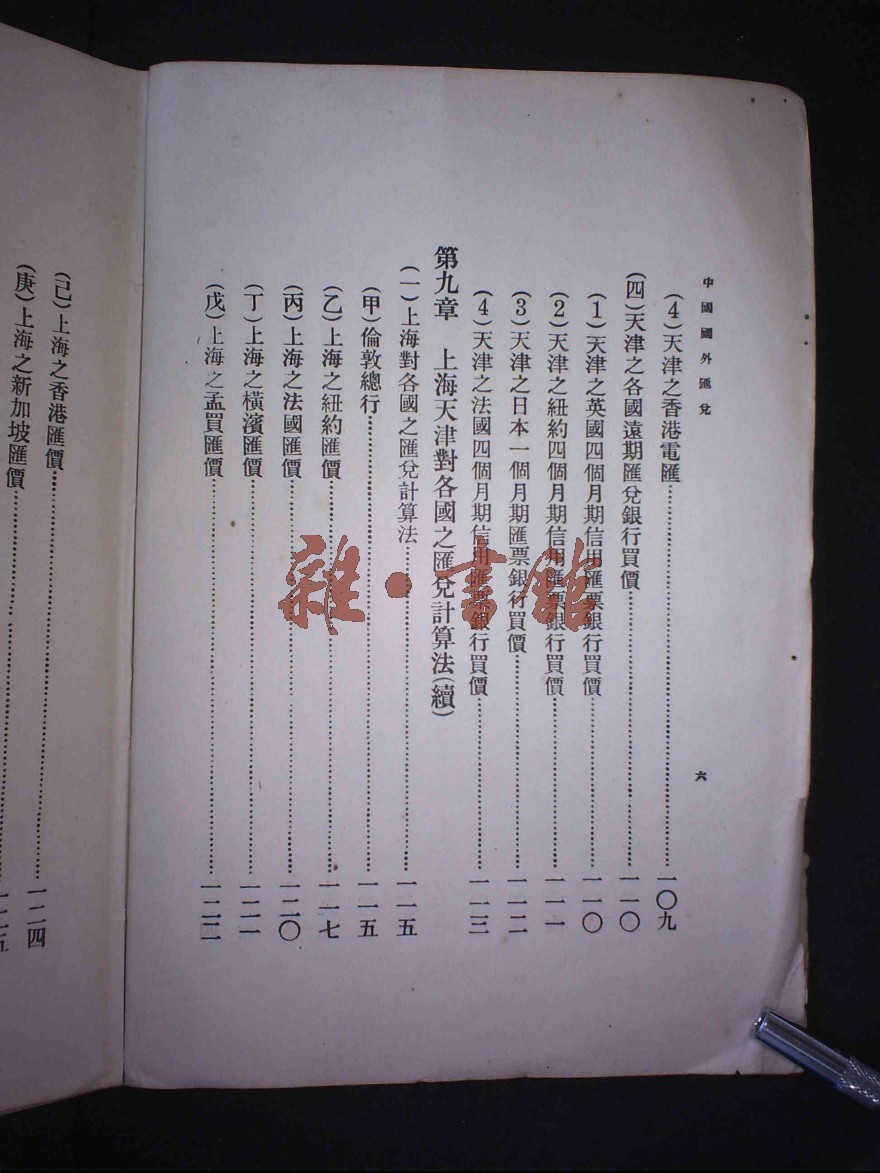 中國國外匯兌
六
(4)天津之香港電匯……一〇九
(四)天津之各國遠期匯兌銀行買價……一一〇
(1)天津之英國四個月期信用匯票銀行買價……一一〇
(2)天津之紐約四個月期信用匯票銀行買價……一一一
(3)天津之日本一個月期匯票銀行買價……一一二
(4)天津之法國四個月期信用匯票銀行買價……一一三
第九章 上海天津對各國之匯兌計算法(續)
(一)上海對各國之匯兌計算法……一一五
(甲)倫敦總行……一一五
(乙)上海之紐約匯價……一一七
(丙)上海之法國匯價……一二〇
(丁)上海之橫濱匯價……一二一
(戊)上海之孟買匯價……一二二
(己)上海之香港匯價……一二四
(庚)上海之新加坡匯價……一二五
雜·書館